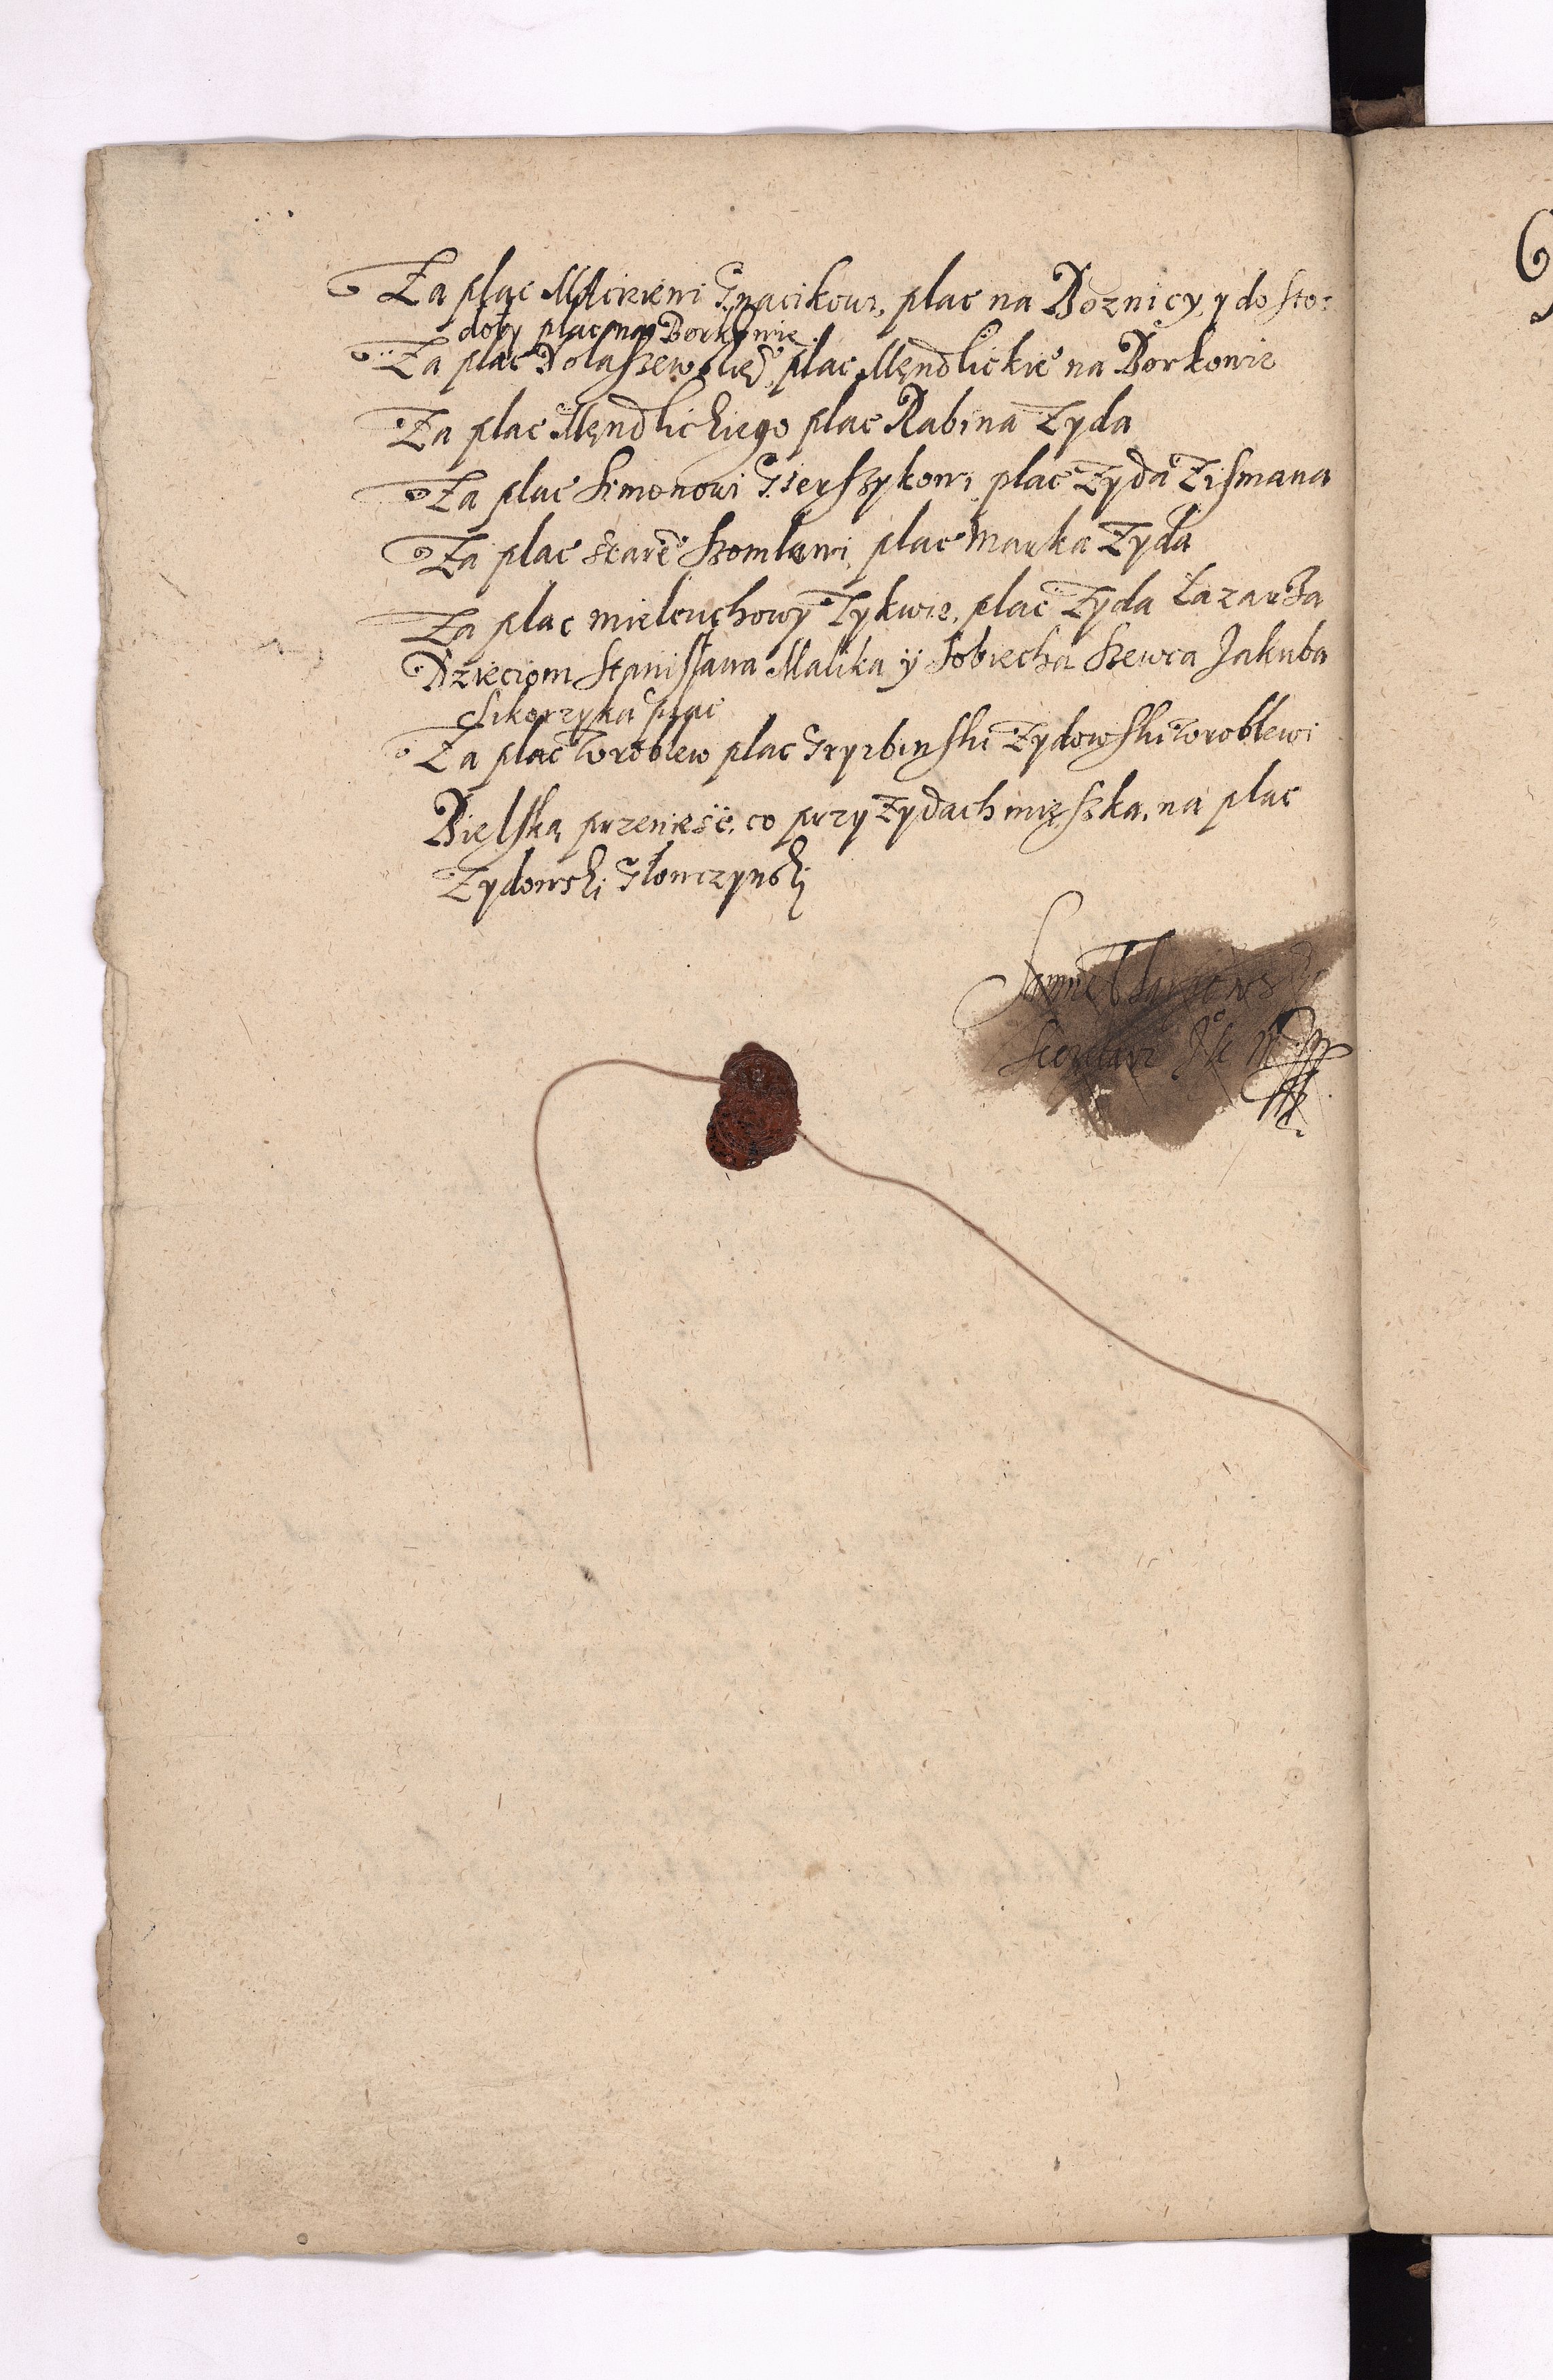 Za plac Mączeni Gnacikowi, plac na Boznicy, y do sto:
doły plac na Borkowie
Za plac Dolaszewskieo, plac Mendlickie na Borkowie
Za plac Mendlickiego plac Rabina Zyda
Za plac Simonowi Gierszykowi plac Zyda Zismana
Za plac stare Szomlewi, plac Marka Zyda
Za plac mieleuchowy Tykwie, plac Zyda Łazarza
Dzieciom Stanisława Malika ÿ Sobiecha Szewca Jakuba
Sikorzyka plac
Za plac Wroblew plac Grzibinski Zydowski Wroblewi
Bielską przenieść, co przy Zydach mięszka, na plac
Zydowski Głowczynski
Samuel